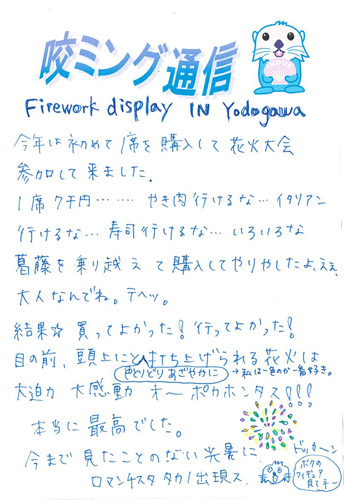 咬ミング通信
Firework display IN Yodogawa
今年は初めて1席を購入して花火大会
参加して来ました。
1席7千円……… やき肉行けるな… イタリアン
行けるな… 寿司行けるな… いろいろな
葛藤を乗り越えて購入してやりやしたよ、ええ。
大人なんでね。テヘッ。
結果☆ 買ってよかった! 行ってよかった!
目の前、頭上にと打ち上げられる花火は
色とりどりあざやかに
→私は一色のが一番好き。
大迫力 大感動 オ〜 ポカホンタス!!!
本当に最高でした。
ドッカーン
今まで見たことのない光景に
ロマンチスタ タカノ出現ス。
ボクの
フィギュア
見てネー